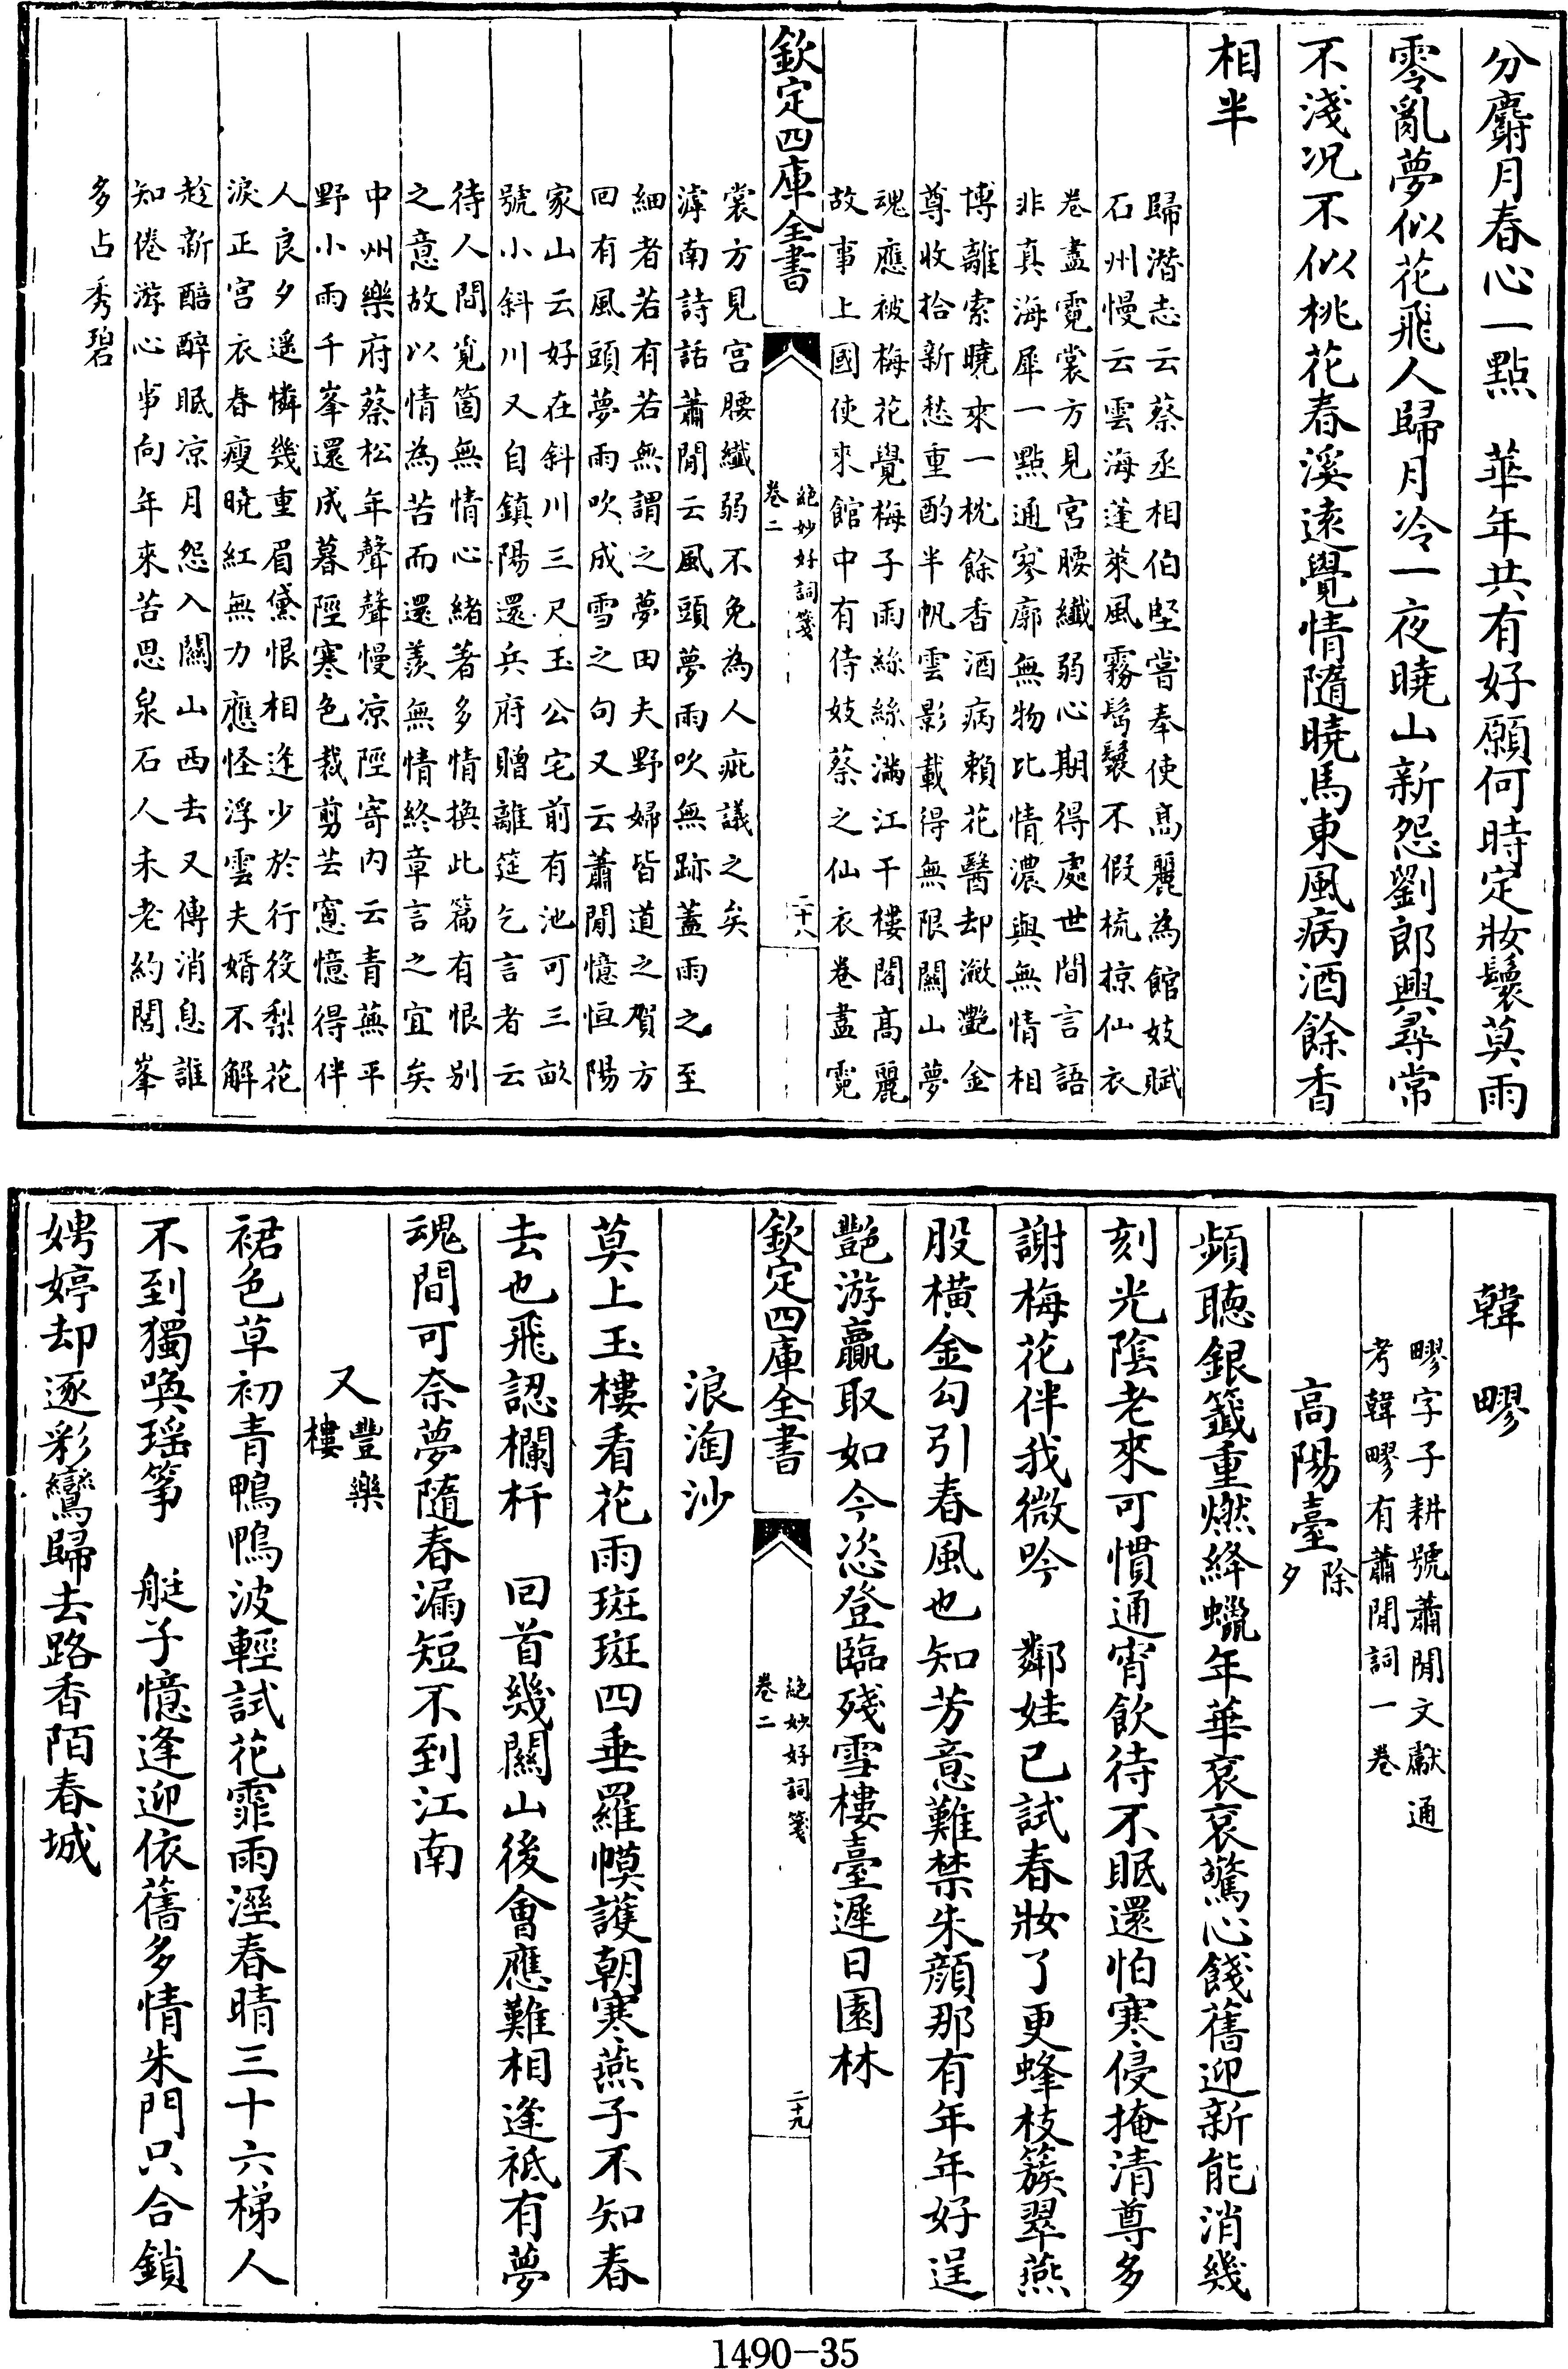 分麝月春心一點　華年共有好願何時定妝鬟莫雨
零亂夢似花飛人歸月冷一夜曉山新怨劉郎興尋常
不淺况不似桃花春溪逺覺情隨曉馬東風病酒餘香
相半
歸潛志云蔡丞相伯堅嘗奉使髙麗為館妓賦
石州慢云雲海蓬萊風霧髩鬟不假梳掠仙衣
卷盡霓裳方見宮腰纖弱心期得處世間言語
非真海犀一點通寥廓無物比情濃與無情相
博離索曉來一枕餘香酒病賴花醫却瀲灧金
尊收拾新愁重酌半帆雲影載得無限關山夢
魂應被梅花覺梅子雨絲絲滿江干樓閣髙麗
故事上國使來館中有侍妓蔡之仙衣卷盡霓
欽定四庫全書
絶妙好詞箋
卷二
二十八
裳方見宮腰纖弱不免為人疵議之矣
滹南詩話蕭閒云風頭夢雨吹無跡蓋雨之至
細者若有若無謂之夢田夫野婦皆道之賀方
回有風頭夢雨吹成雪之句又云蕭閒憶恒陽
家山云好在斜川三尺玉公宅前有池可三畝
號小斜川又自鎮陽還兵府贈離筵乞言者云
待人間覓箇無情心緒著多情換此篇有恨别
之意故以情為苦而還羨無情終章言之宜矣
中州樂府蔡松年聲聲慢凉陘寄内云青蕪平
野小雨千峯還成暮陘寒色裁剪芸窻憶得伴
人良夕遥憐幾重眉黛恨相逢少於行役梨花
淚正宫衣春瘦曉紅無力應怪浮雲夫婿不解
趁新醅醉眠凉月怨入關山西去又傳消息誰
知倦游心事向年來苦思泉石人未老約閒峯
多占秀碧
韓　疁
疁字子耕號蕭閒文獻通
考韓疁有蕭閒詞一卷
高陽臺除夕
頻聽銀籤重燃絳蠟年華衮衮驚心餞舊迎新能消幾
刻光陰老來可慣通宵飲待不眠還怕寒侵掩清尊多
謝梅花伴我微吟　鄰娃已試春妝了更蜂枝簇翠燕
股橫金勾引春風也知芳意難禁朱顔那有年年好逞
艷游贏取如今恣登臨殘雪樓臺遲日園林
欽定四庫全書
絶妙好詞箋
卷二
二十九
浪淘沙
莫上玉樓看花雨斑斑四垂羅幙護朝寒燕子不知春
去也飛認欄杆　回首幾關山後會應難相逢祗有夢
魂間可奈夢隨春漏短不到江南
又豐樂樓
裙色草初青鴨鴨波輕試花霏雨溼春晴三十六梯人
不到獨喚瑶筝　艇子憶逢迎依舊多情朱門只合鎖
娉婷却逐彩鸞歸去路香陌春城
1490-35